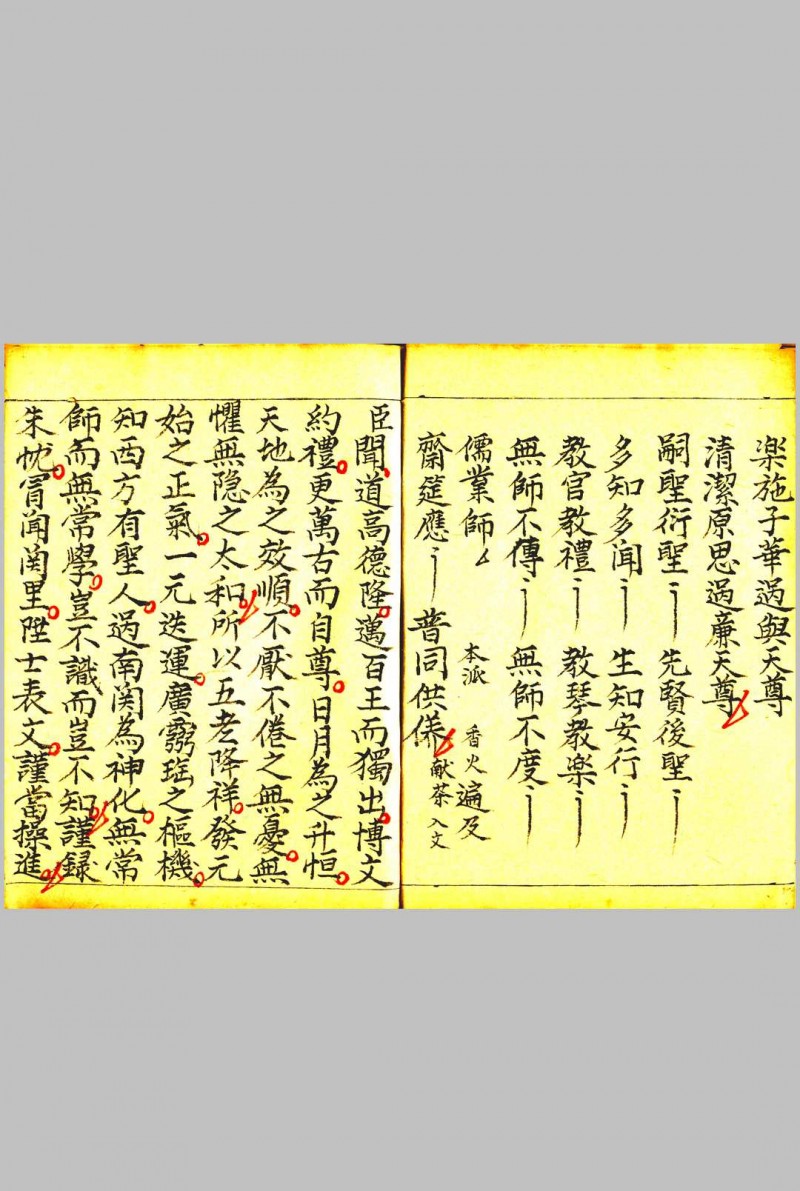 楽施子華過與天尊
清潔原思過亷天尊
嗣聖衍聖〻 先賢後聖〻
多知多闻〻 生知安行〻
教官教禮〻 教琴教楽〻
無師不傳〻 無師不度〻
儒業師 本派 香火遍及
齋筵應〻 普同供儀 献茶入文
臣聞道高德隆邁百王而獨出博文
約禮更萬古而自尊日月為之升恒
天地為之效順不厭不倦之無憂無
懼無隐之太和所以五老降祥發元
始之正氣一元迭運廣霛瑤之樞機
知西方有聖人過南関為神化無常
師而無常學豈不識而豈不知謹録
朱忱冐闻闕里陛士表文謹當操進